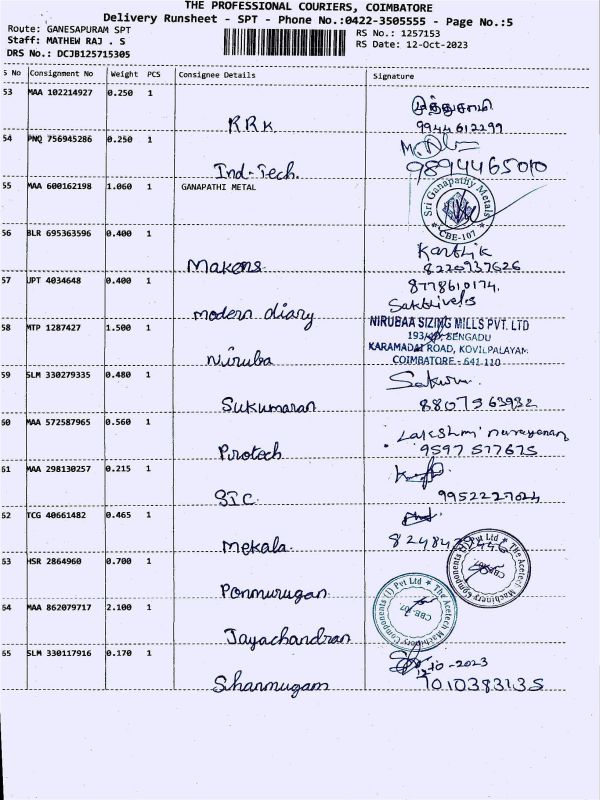 THE PROFESSIONAL COURIERS, COIMBATORE
Delivery Runsheet - SPT - Phone No.:0422-3505555 - Page No.:5
Route: GANESAPURAM SPT
Staff: MATHEW RAJ . S
DRS No.: DCJB125715305
RS No.: 1257153
RS Date: 12-Oct-2023
S No Consignment No Weight PCS Consignee Details Signature
53 MAA 102214927 0.250 1
முத்துசாமி
RRK 9944612299
54 PNQ 756945286 0.250 1
Ind-Tech. 9894465010
55 MAA 600162198 1.060 1 GANAPATHI METAL
Sri Ganapathy Metals
CBE-107
56 BLR 695363596 0.400 1
Karthik
Makens 8220937626
57 JPT 4034648 0.400 1
8778610174.
Sakthivels
modern diary
58 MTP 1287427 1.500 1
NIRUBAA SIZING MILLS PVT. LTD
SENGADU
KARAMADAI ROAD, KOVILPALAYAM
COIMBATORE - 641 110
Niruba
59 SLM 330279335 0.480 1
Sukumaran 8807563932
60 MAA 572587965 0.560 1
Lakshmi narayanan
Protech 9597577675
61 MAA 298130257 0.215 1
STC
62 TCG 40661482 0.465 1
Mekala.
63 HSR 2864960 0.700 1
The Acetech Machinery Components (I) Pvt Ltd
CBE-107
Ponmurugan
64 MAA 862079717 2.100 1
The Acetech Machinery Components (I) Pvt Ltd
CBE-107
Jayachandran
65 SLM 330117916 0.170 1
12-10-2023
Shanmugam 7010383135